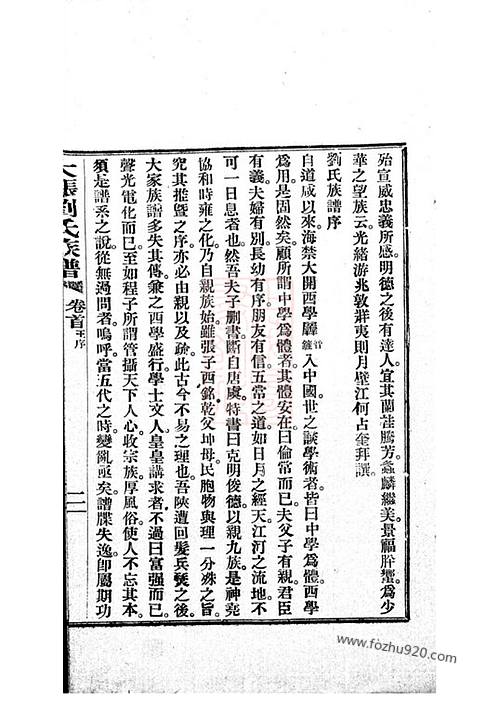 殆宣威忠義所感明德之後有達人宜其蘭茁騰芳螽麟繼美景福肸蠁爲少
華之望族云光緒游兆敦牂夷則月壁江何占奎拜譔
劉氏族譜序
自道咸以來海禁大開西學駸駸入中國世之談學術者皆曰中學爲體西學
爲用是固然矣顧所謂中學爲體者其體安在曰倫常而已夫父子有親君臣
有義夫婦有別長幼有序朋友有信五常之道如日月之經天江河之流地不
可一日息者也然吾夫子刪書斷自唐虞特書曰克明俊德以親九族是神堯
協和時雍之化乃自親族始雖張子西銘乾父坤母民胞物與理一分殊之旨
究其推暨之序亦必由親以及疏此古今不易之理也吾陜遭回髮兵燹之後
大家族譜多失其傳兼之西學盛行學士文人皇皇講求者不過曰富强而已
聲光電化而已至如程子所謂管攝天下人心收宗族厚風俗使人不忘其本
須是譜系之說從無過問者嗚呼當五代之時變亂亟矣譜牒失逸卽屬期功
劉氏族譜
卷首
王序
二
www.fozhu920.com